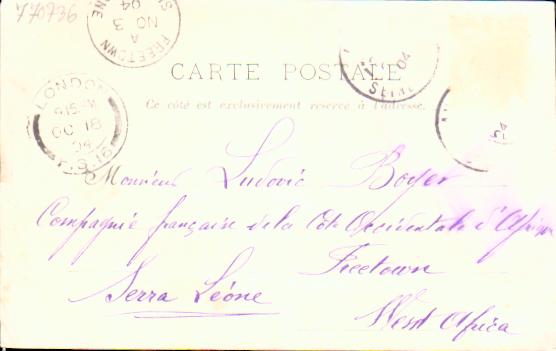 770736
FREETOWN
A
NO 3
04
CARTE POSTALE
Ce côté est exclusivement reservé à l'adresse.
04
SEINE
LONDON
9 15 AM
OC 18
04
Monsieur Ludovic Boyer
Compagnie française de la Côte Occidentale d'Afrique
Freetown
Serra Léone
West Africa